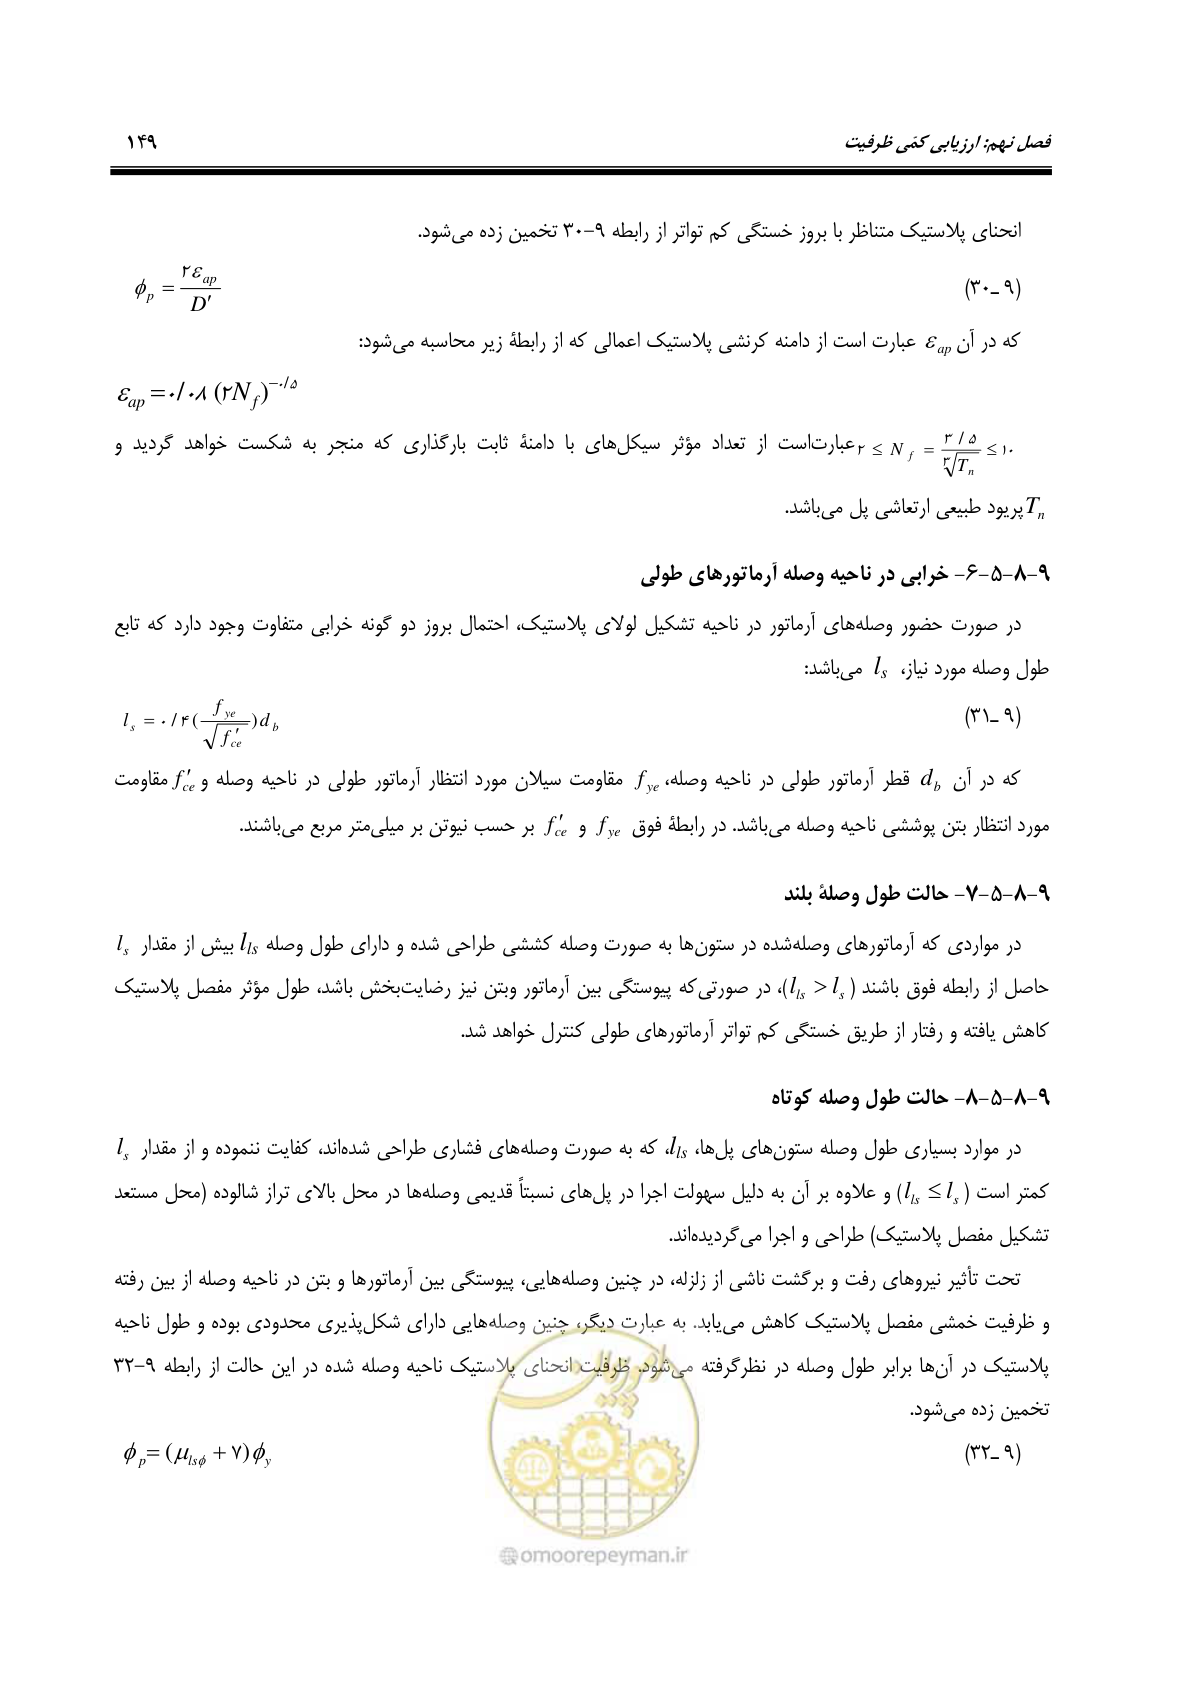 فصل نهم: ارزیابی کمّی ظرفیت ۱۴۹
انحنای پلاستیک متناظر با بروز خستگی کم تواتر از رابطه ۹-۳۰ تخمین زده می‌شود.
(۹ ـ۳۰) ϕp = ۲εap / D′
که در آن εap عبارت است از دامنه کرنشی پلاستیک اعمالی که از رابطهٔ زیر محاسبه می‌شود:
εap =۰/۰۸ (۲Nf)^−۰/۵
۲ ≤ Nf = ۳/۵ / ∛Tn ≤ ۱۰ عبارت‌است از تعداد مؤثر سیکل‌های با دامنهٔ ثابت بارگذاری که منجر به شکست خواهد گردید و
Tn پریود طبیعی ارتعاشی پل می‌باشد.
۹-۸-۵-۶- خرابی در ناحیه وصله آرماتورهای طولی
در صورت حضور وصله‌های آرماتور در ناحیه تشکیل لولای پلاستیک، احتمال بروز دو گونه خرابی متفاوت وجود دارد که تابع
طول وصله مورد نیاز، ls می‌باشد:
(۹ ـ۳۱) ls = ۰/۴(fye / √f′ce)db
که در آن db قطر آرماتور طولی در ناحیه وصله، fye مقاومت سیلان مورد انتظار آرماتور طولی در ناحیه وصله و f′ce مقاومت
مورد انتظار بتن پوششی ناحیه وصله می‌باشد. در رابطهٔ فوق fye و f′ce بر حسب نیوتن بر میلی‌متر مربع می‌باشند.
۹-۸-۵-۷- حالت طول وصلهٔ بلند
در مواردی که آرماتورهای وصله‌شده در ستون‌ها به صورت وصله کششی طراحی شده و دارای طول وصله lls بیش از مقدار ls
حاصل از رابطه فوق باشند (lls > ls)، در صورتی‌که پیوستگی بین آرماتور وبتن نیز رضایت‌بخش باشد، طول مؤثر مفصل پلاستیک
کاهش یافته و رفتار از طریق خستگی کم تواتر آرماتورهای طولی کنترل خواهد شد.
۹-۸-۵-۸- حالت طول وصله کوتاه
در موارد بسیاری طول وصله ستون‌های پل‌ها، lls، که به صورت وصله‌های فشاری طراحی شده‌اند، کفایت ننموده و از مقدار ls
کمتر است (lls ≤ ls) و علاوه بر آن به دلیل سهولت اجرا در پل‌های نسبتاً قدیمی وصله‌ها در محل بالای تراز شالوده (محل مستعد
تشکیل مفصل پلاستیک) طراحی و اجرا می‌گردیده‌اند.
تحت تأثیر نیروهای رفت و برگشت ناشی از زلزله، در چنین وصله‌هایی، پیوستگی بین آرماتورها و بتن در ناحیه وصله از بین رفته
و ظرفیت خمشی مفصل پلاستیک کاهش می‌یابد. به عبارت دیگر، چنین وصله‌هایی دارای شکل‌پذیری محدودی بوده و طول ناحیه
پلاستیک در آن‌ها برابر طول وصله در نظرگرفته می‌شود. ظرفیت انحنای پلاستیک ناحیه وصله شده در این حالت از رابطه ۹-۳۲
تخمین زده می‌شود.
(۹ ـ۳۲) ϕp= (μlsϕ + ۷)ϕy
امور پیمان
@omoorepeyman.ir